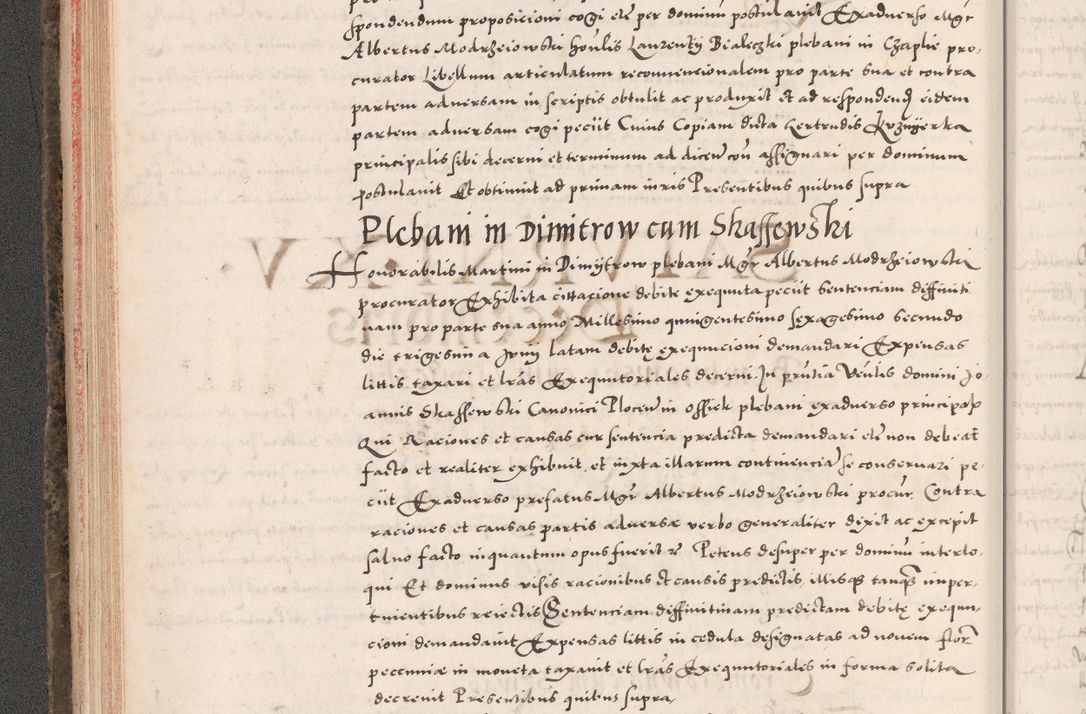 spondendum proposicioni cogi etc per dominum postulavit Exadverso Mgr
Albertus Modrzeiowski honlis Laurenty Bialeczki plebani in Czaple pro-
curator Libellum articulatum reconvencionalem pro parte sua et contra
partem adversam in scriptis obtulit ac produxit Et ad respondend eidem
partem adversam cogi peciit Cuius Copiam dicta Gertrudis Krznyerka
principalis sibi decerni et terminum ad dicen con assignari per dominum
postulavit Et obtinuit ad primam iuris Presentibus quibus supra
Plebani in Dimitrow cum Skassewski
Honorabilis Martini in Dimytrow plebani Mgr Albertus Modrzeiowski
procurator Exhibita cittacione debite exequuta peciit Sentenciam diffiniti
vam pro parte sua anno Millesimo quingentesimo sexagesimo secundo
die trigesima Junij latam debitę exequucioni demandari Expensas
littis taxari et lras Exequutoriales decerni In pntia Venlis domini Jo
annis Skassewski Canonici Plocen in Ossiek plebani exadverso principalis
Qui Raciones et causas cur sentencia predicta demandari etc non debeat
facto et realiter exhibuit, et iuxta illarum continencia se conservari pe-
ciit Exadverso prefatus Mgr Albertus Modrzeiowski procur. Contra
raciones et causas partis adversæ verbo generaliter dixit ac excepit
salvo facto inquantum opus fuerit etc Petens desuper per dominum interlo-
qui Et dominus visis racionibus et causis predictis, illisque tanquam imper-
tinentibus reiectis Sentenciam diffinitivam predictam debitę exequu-
cioni demandavit Expensas littis in cedula designatas ad novem flor
peccuniæ in moneta taxavit et lras Exequutoriales in forma solita
decrevit Presentibus quibus supra